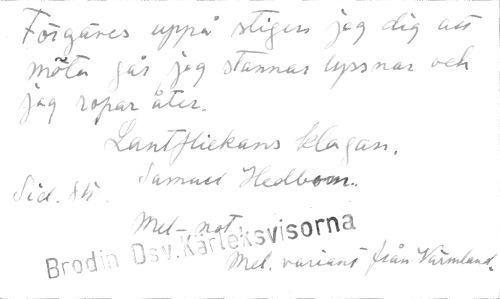 Förgäves uppå stigen jag dig att
möta går jag stannar lyssnar och
jag ropar åter.
Lantflickans klagan.
Samuel Hedborn.
Sid. 84.
Mel-not.
Brodin Dsv. Kärleksvisorna
Mel. variant från Värmland.